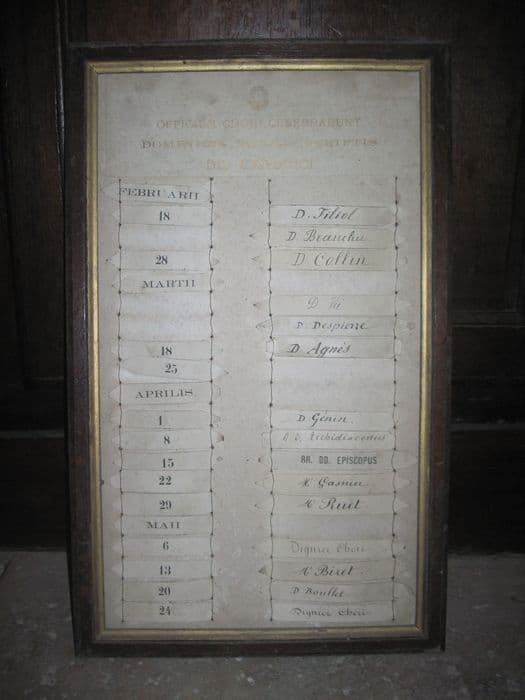 OFFICIUM CHORI CELEBRABUNT
DD. CANONICI
FEBRUARII
18 D. Filiol
D. Branchu
28 D Collin
MARTII
D
D Despierre
18 D. Agnès
25
APRILIS
1 D Génin
8 R D. Archidiaconus
15 RR. DD. EPISCOPUS
22 Gasnier
29 Ruet
MAII
6 Dignior Chori
13 Bizet
20 D Boullet
24 Dignior Chori